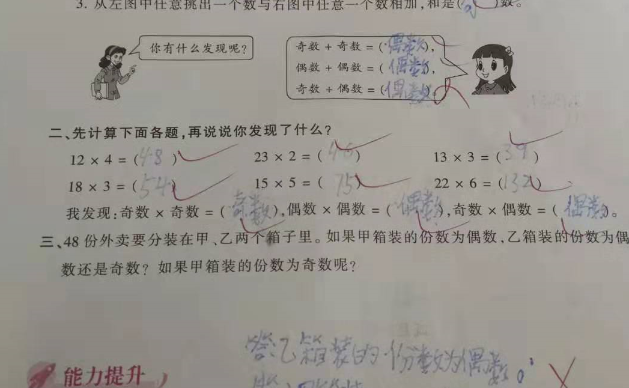 3. 从左图中任意挑出一个数与右图中任意一个数相加，和是(  )数。
你有什么发现呢？
奇数 + 奇数 = (偶数),
偶数 + 偶数 = (偶数),
奇数 + 偶数 = (偶数)
二、先计算下面各题，再说说你发现了什么？
12 × 4 = (48) 23 × 2 = (46) 13 × 3 = (39)
18 × 3 = (54) 15 × 5 = (75) 22 × 6 = (132)
我发现：奇数 × 奇数 = (奇数),偶数 × 偶数 = (偶数),奇数 × 偶数 = (偶数)。
三、48 份外卖要分装在甲、乙两个箱子里。如果甲箱装的份数为偶数，乙箱装的份数为偶
数还是奇数？如果甲箱装的份数为奇数呢？
答:乙箱装的份数为偶数。
能力提升